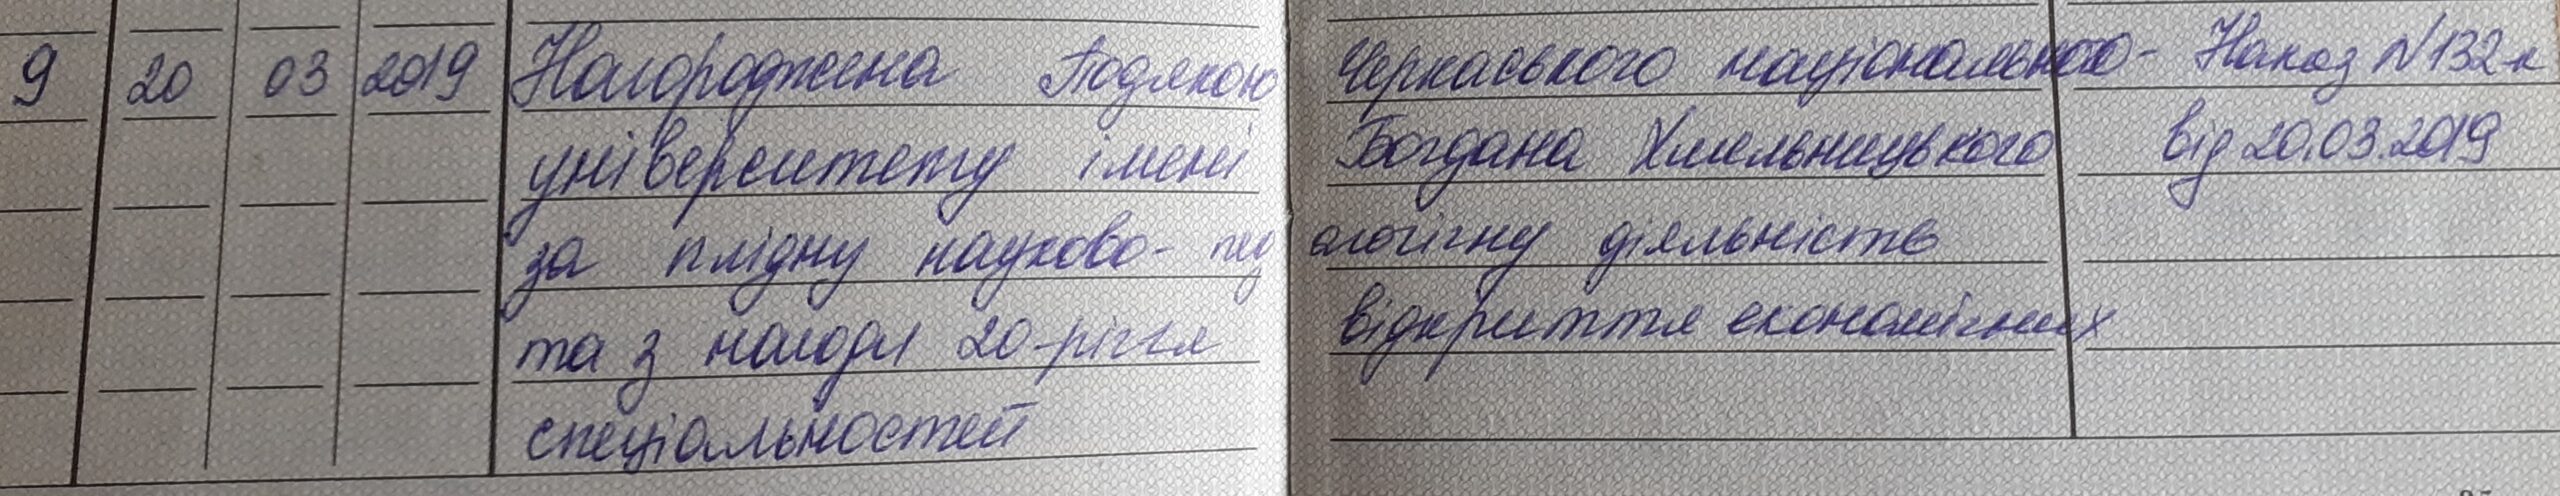 9 20 03 2019 Нагороджена Подякою Черкаського національного Наказ №132-к
університету імені Богдана Хмельницького від 20.03.2019
за плідну науково-педагогічну діяльність
та з нагоди 20-річчя відкриття економічних
спеціальностей